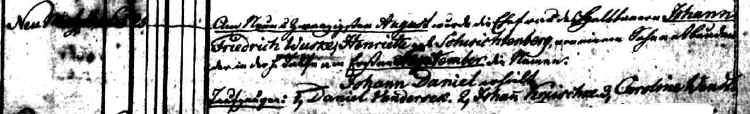 Neu
Den Neun & zwanzigsten August wurde die Ehefrau des Halbbauern Johann
Friedrich Wuske, Henriette geb. Schwichtenberg von einem Sohne entbunden
der in der Taufe am September die Namen:
Johann Daniel erhielt
Taufzeugen: 1, Daniel 2, Johann 3, Caroline